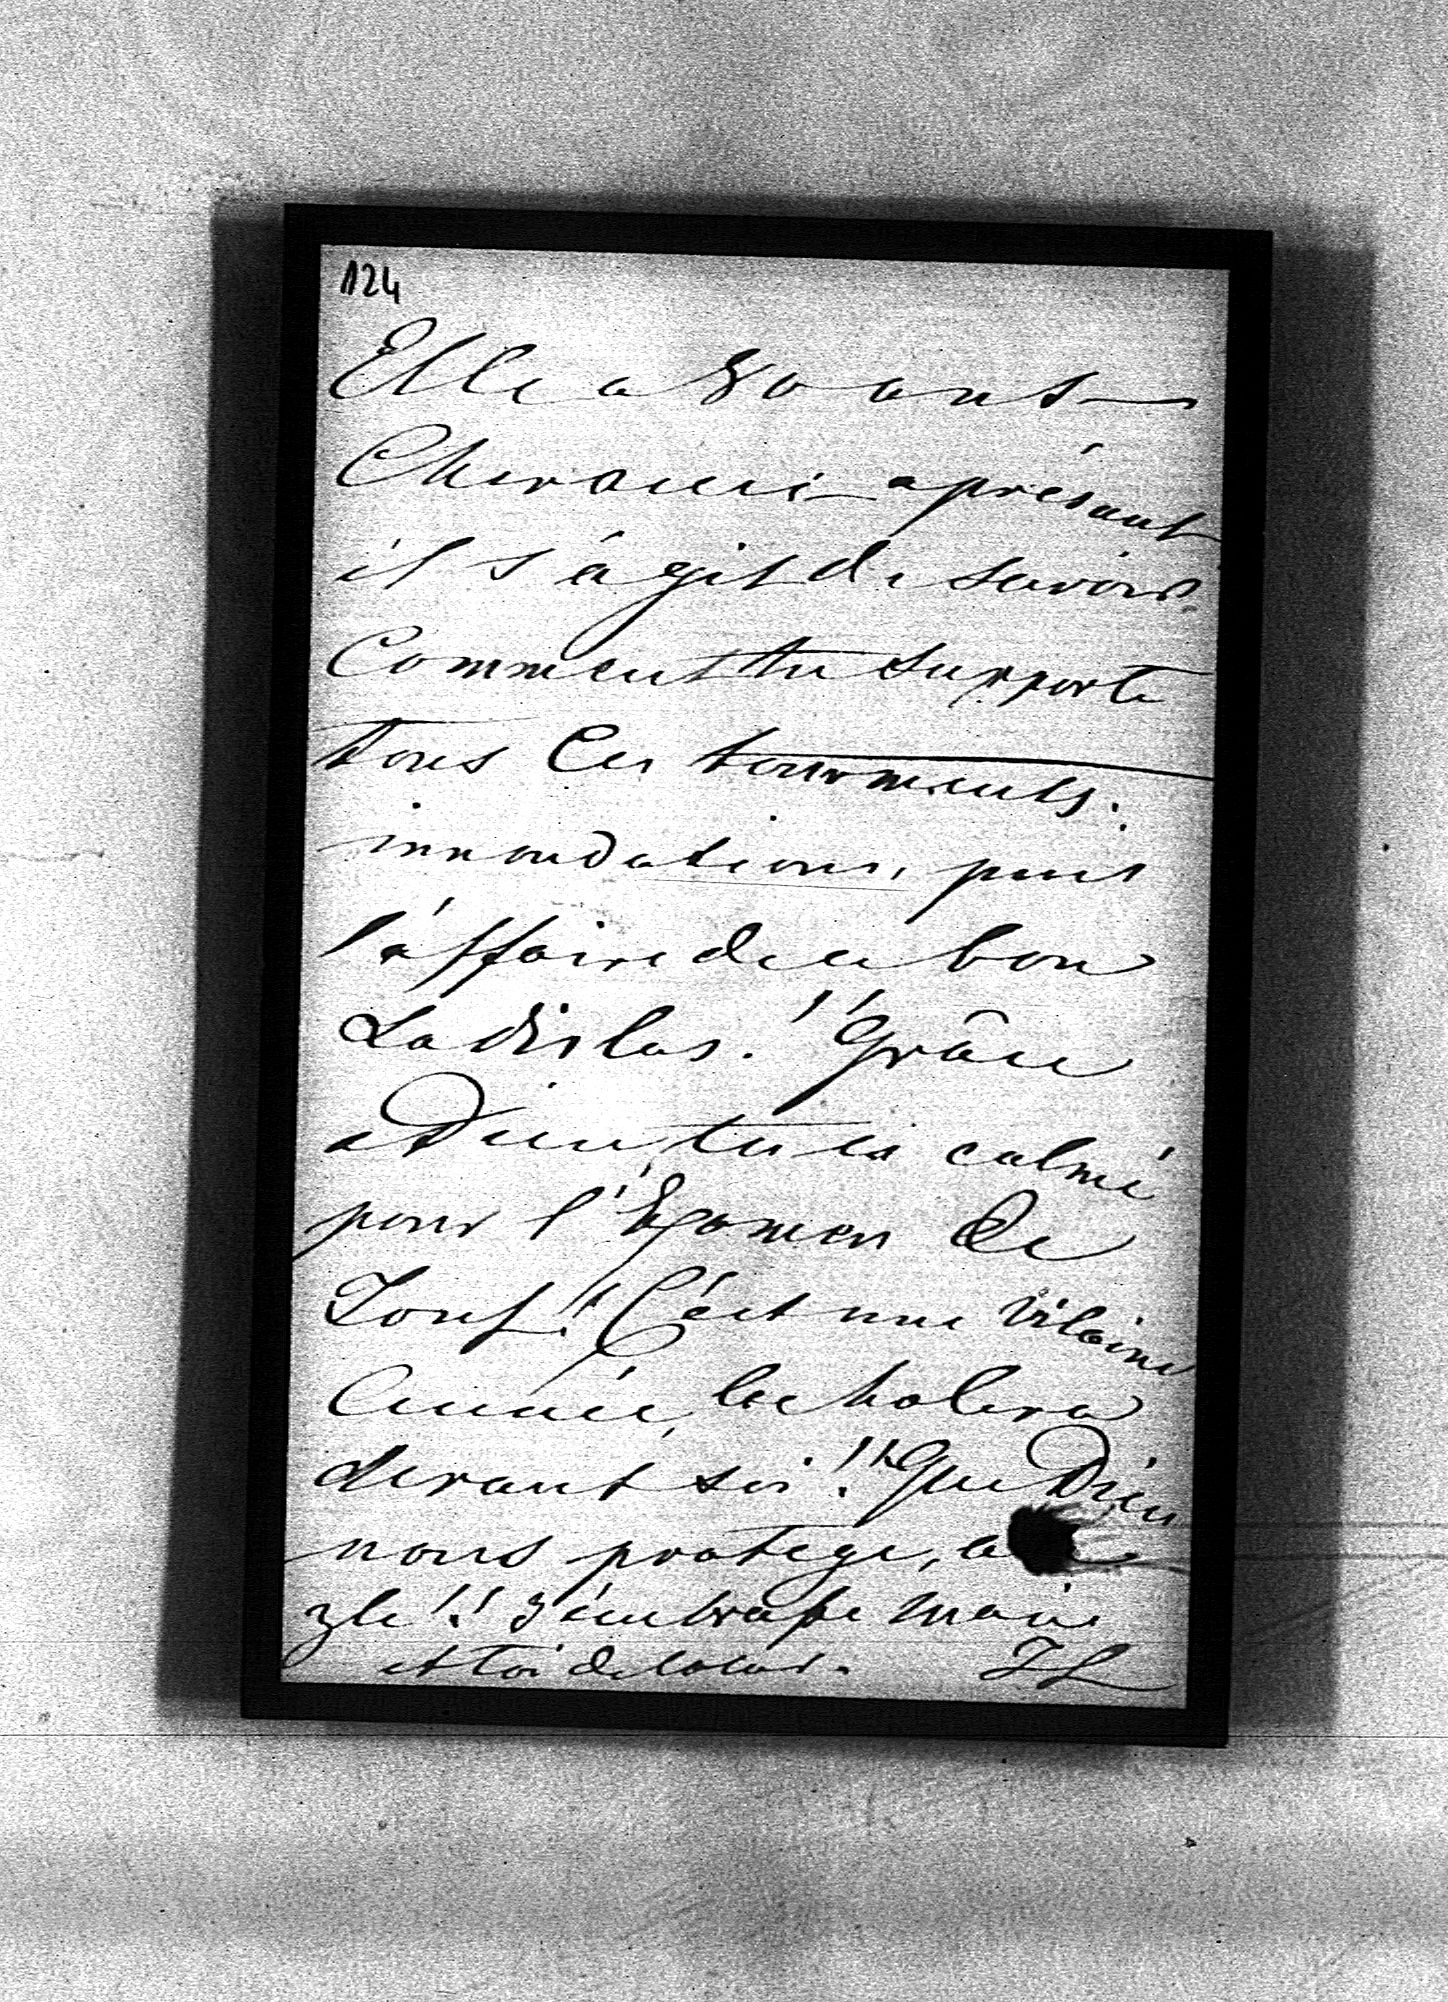 124
Elle a 80 ans —
Cher ami aprésant
il s'ágit de savoir
Comment tu supporte
tous Ces tourments:
innondations, puis
l'áffaire de ce bon
Ladislas.!! Grâce
a Dieu tu es calmé
pour l'Examen de
Jouf!! C'ést une vilaine
Année, le cholera
devant soi!!! Que Dieu
nous protege,
zle!! J'embrasse Marie
et toi de coeur. JL